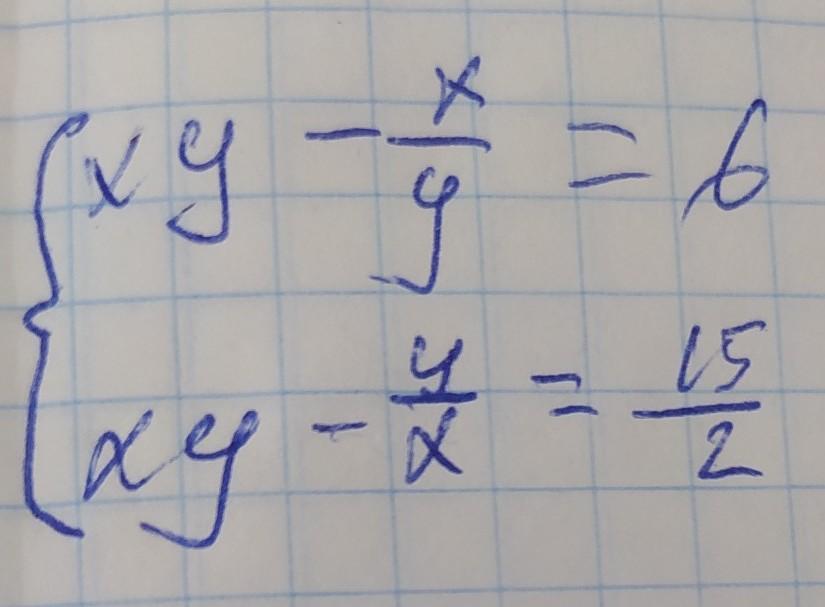 xy - x/y = 6
xy - y/x = 15/2